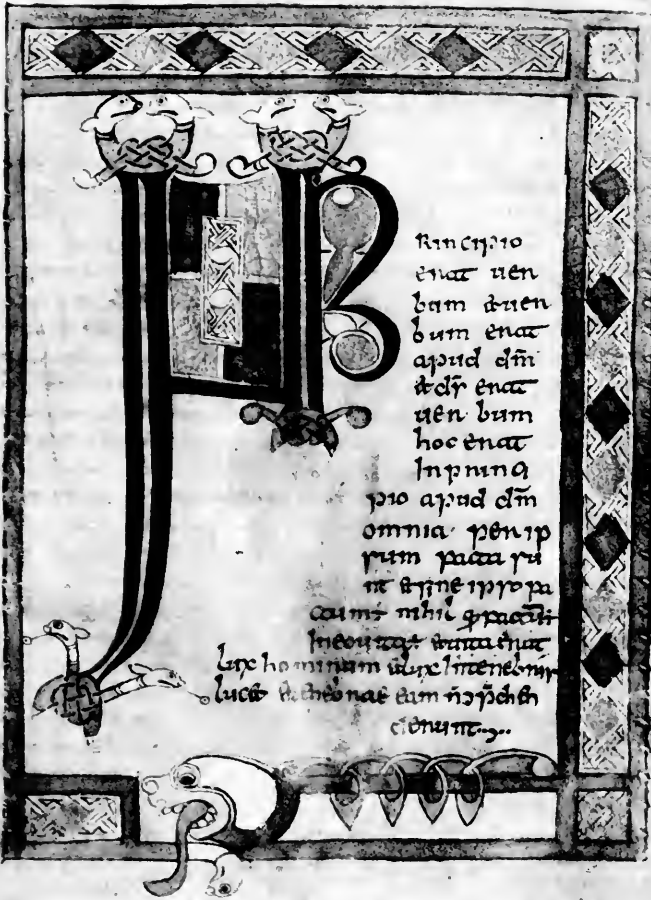 INP
Rincipio
erat uer
bum &uer
bum erat
apud dm̄
&ds̄ erat
uer bum
hoc erat
Inprinci
pio apud dm̄
omnia per ip
sum facta su
nt &sine ipso fa
nihil
Ineouita &uita erat
lux hominum &lux Intenebris
luc& &tenebrae eam n̄ ɔp̄chen
derunt